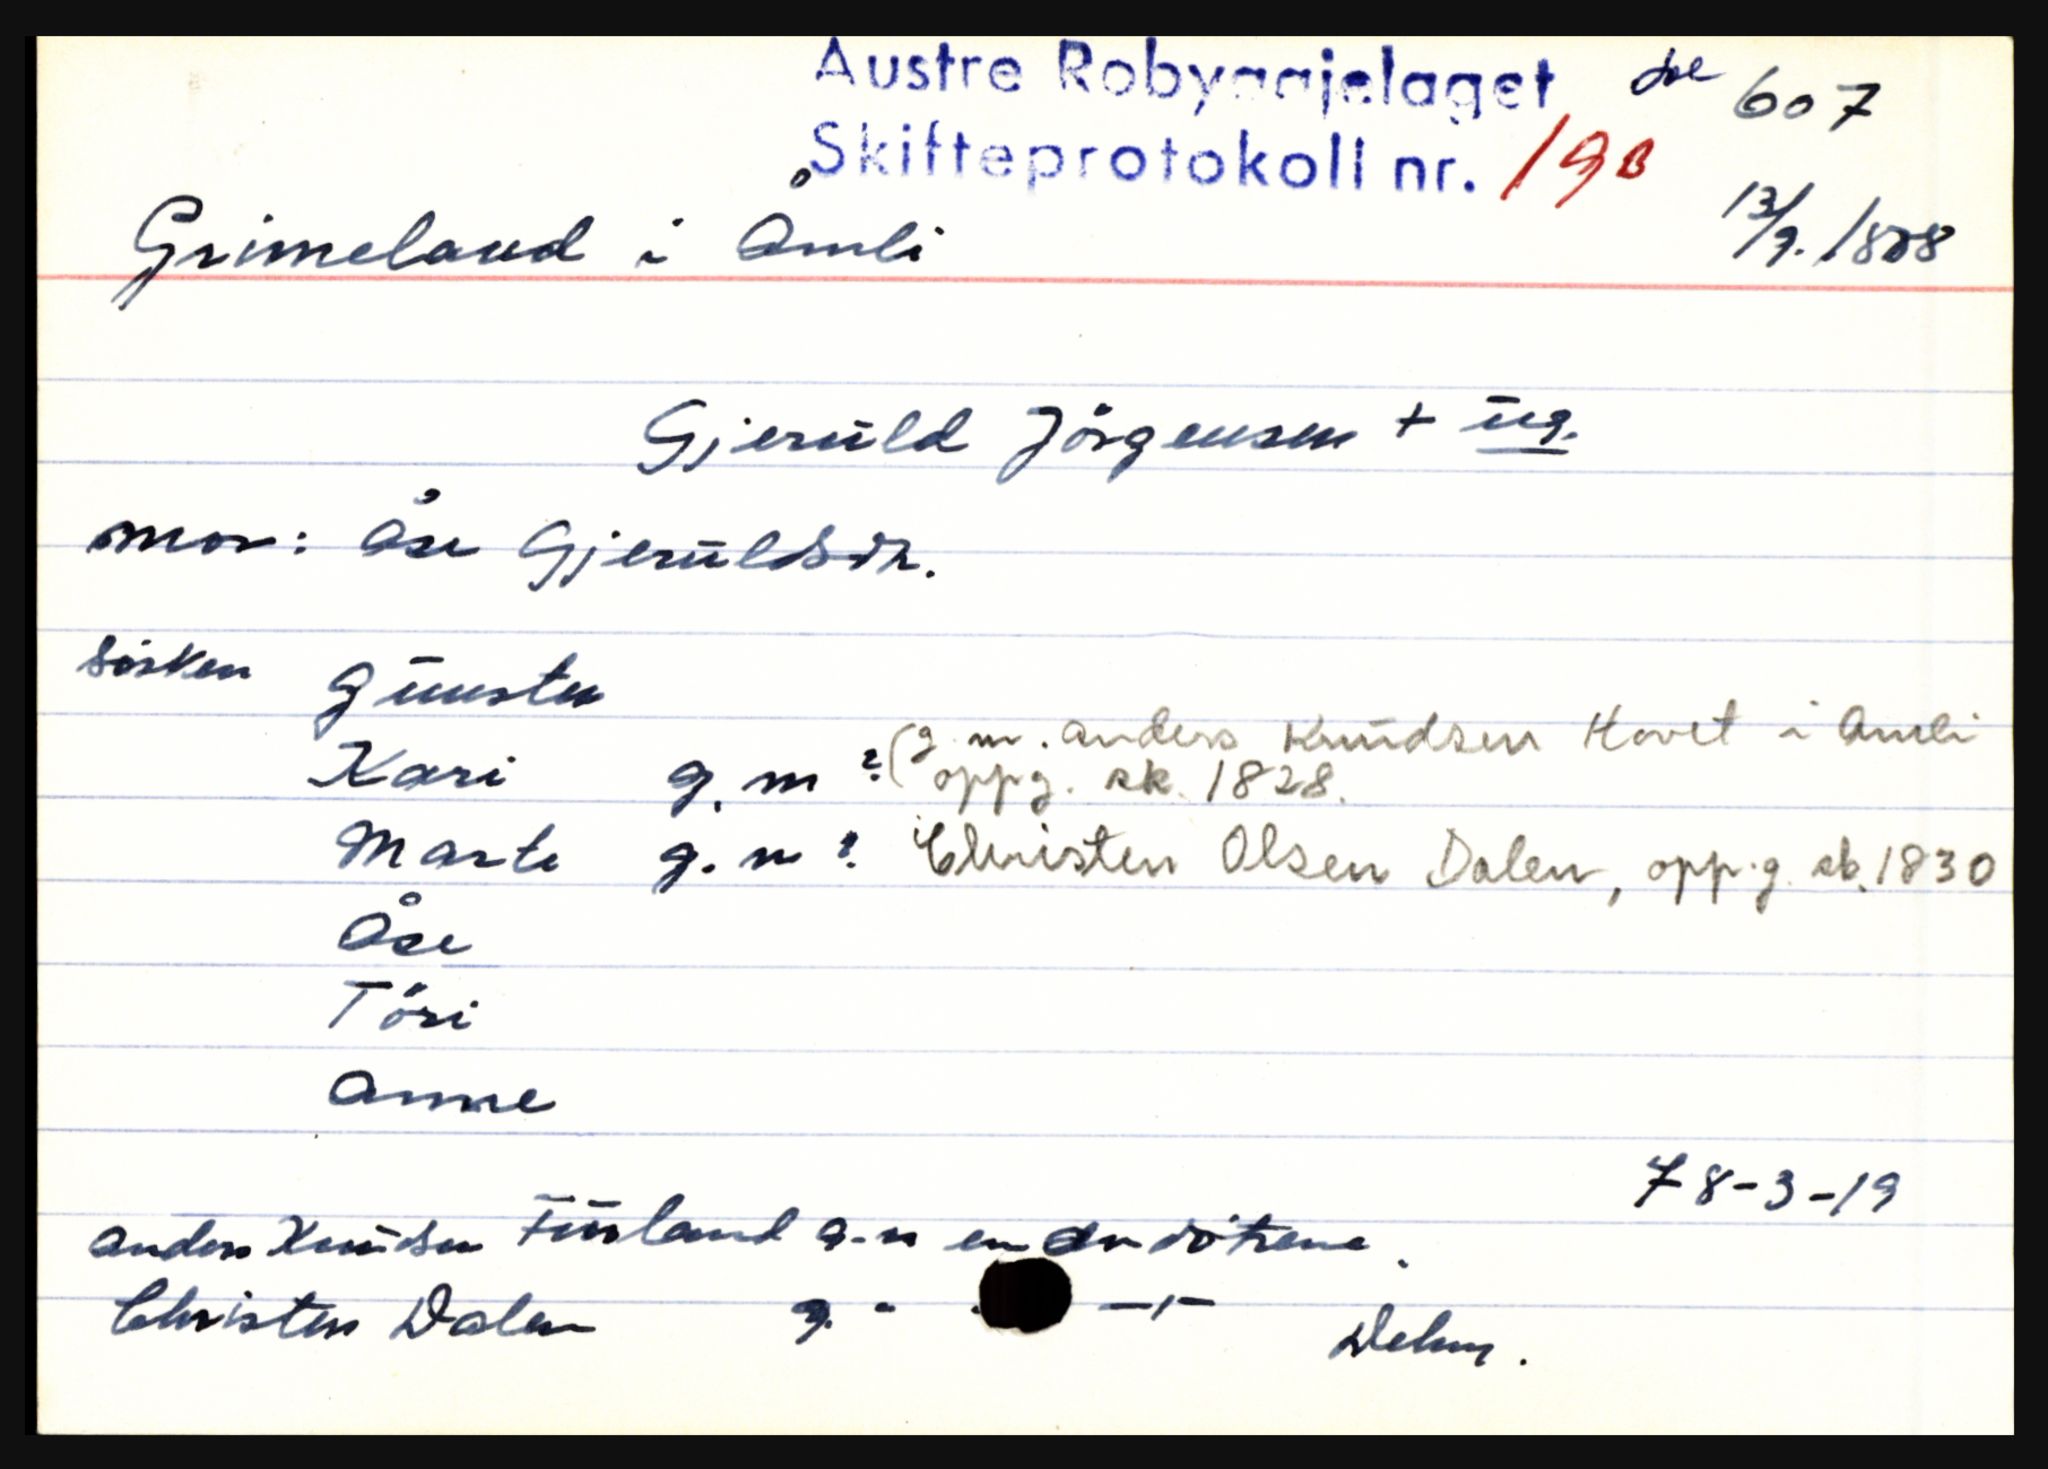 Austre Robyggjelaget
607
Skifteprotokoll nr. 19B
Grimeland i Åmli
13/9. 1808
Gjerŭld Jörgensen + ŭg.
mor: Åse Gjerŭldsdr.
Sösken Gŭnsten
Kari g. m ? (g. m. Anders Knŭdsen Hovet i Amli
oppg. sk. 1828.
Marte g. m ? Christen Olsen Dalen, oppg. sk. 1830
Åse
Töri
Anne
78-3-19
Anders Knŭdsen g. m en av dötrene.
Christen Dalen g. - -"-